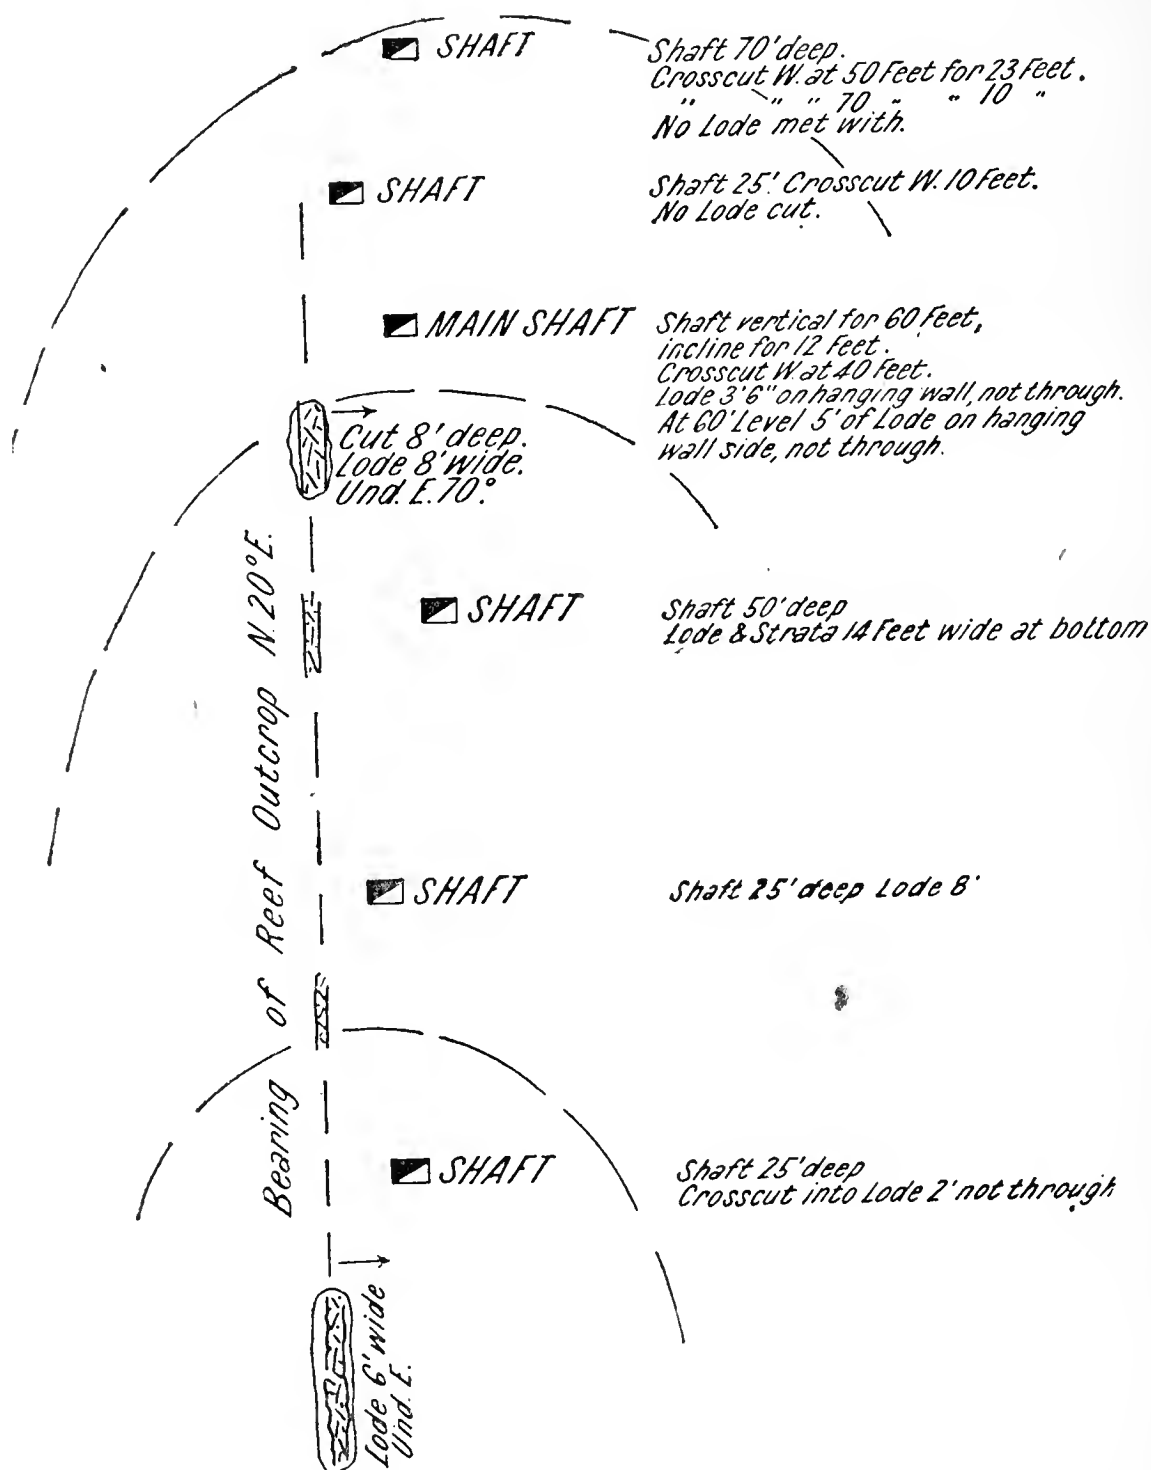 SHAFT
Shaft 70' deep.
Crosscut W. at 50 Feet for 23 Feet.
" " " 70 " " 10 "
No Lode met with.
SHAFT
Shaft 25'. Crosscut W. 10 Feet.
No Lode cut.
MAIN SHAFT
Shaft vertical for 60 Feet,
incline for 12 Feet.
Crosscut W. at 40 Feet.
Lode 3'6" on hanging wall, not through.
At 60' Level 5' of Lode on hanging
wall side, not through.
Cut 8' deep.
Lode 8' wide.
Und. E. 70°.
Bearing of Reef Outcrop N. 20° E.
SHAFT
Shaft 50' deep
Lode & Strata 14 Feet wide at bottom
SHAFT
Shaft 25' deep Lode 8'
SHAFT
Shaft 25' deep
Crosscut into Lode 2' not through
Lode 6' wide
Und. E.